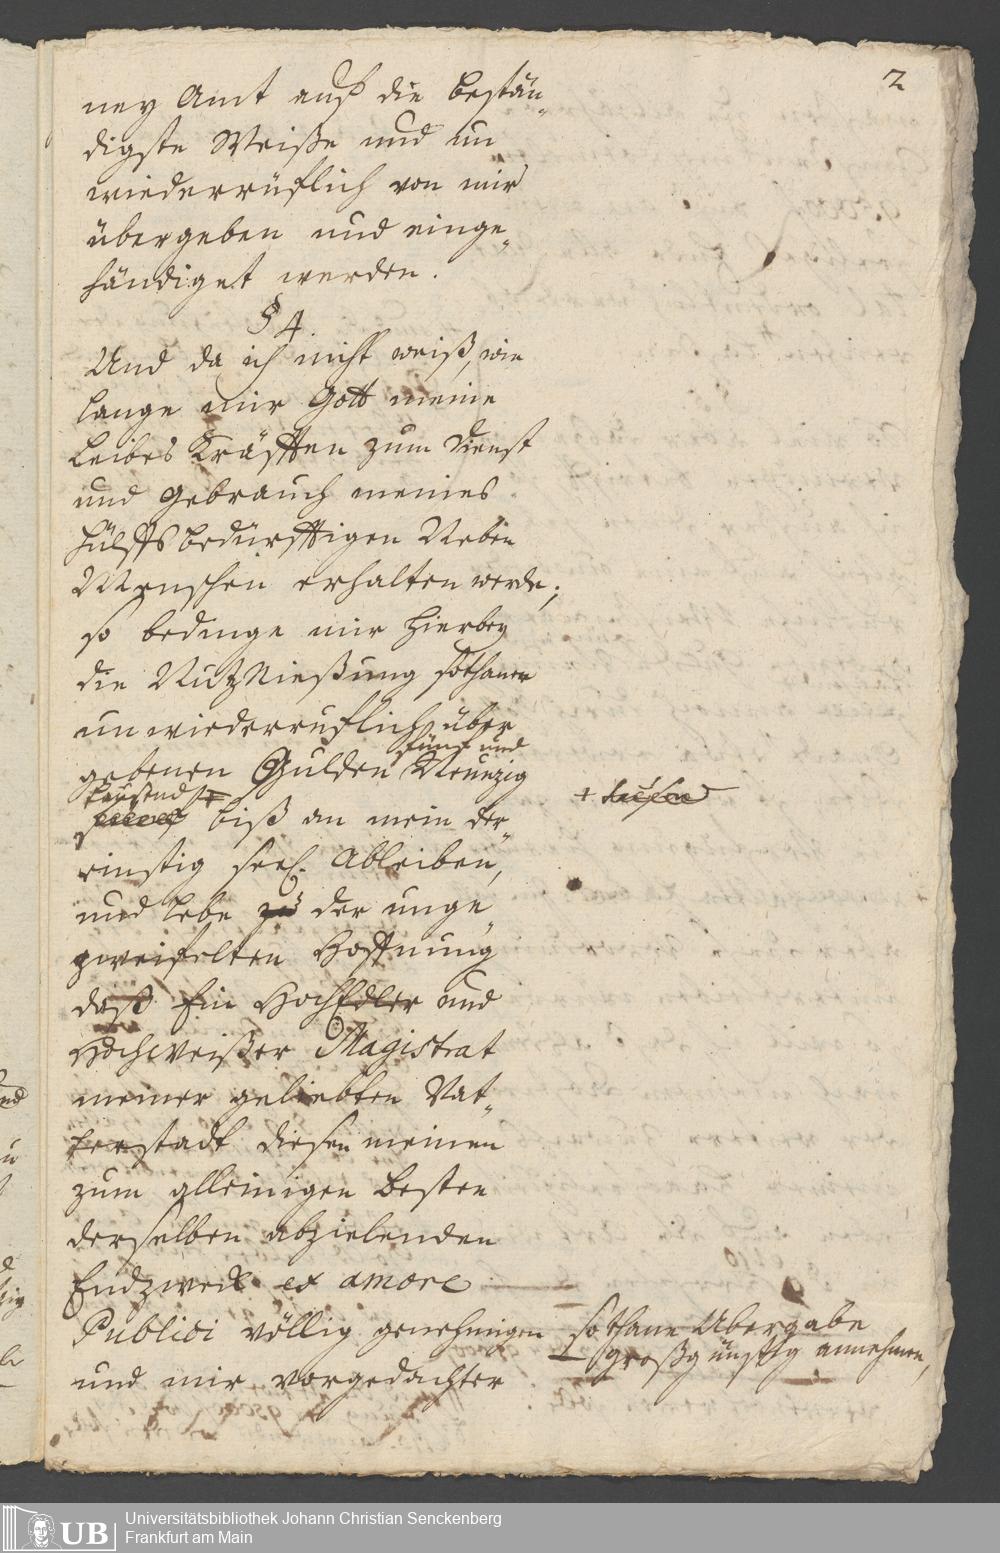 2
ney Amt auf die bestän„
digste Weiße und un
wiederrüflich von mir
übergeben und einge„
händiget werden.
§ 4.
Und da ich nicht weiß, wie
lange mir Gott meine
Leibes Kräfften zum Dienst
und Gebrauch meines
hülffsbedürfftigen Neben
Menschen erhalten werde;
so bedinge mir hierbey
die NutzNießung sothaner
unwiederruflich über
gebenen Gulden fünf und Neunzig
tausend + biß an mein der„
einstig seel. Ableiben,
und lebe der unge„
zweifelten Hoffnung
daß Ein HochEdler und
Hochweißer Magistrat
meiner geliebten Vat„
terstadt diesen meinen
zum alleinigen Besten
derselben abzielenden
Endzweck ex amore
Publici völlig genehmigen
sothane Übergabe
großgünstig annehmen,
und mir vorgedachter
UB Universitätsbibliothek Johann Christian Senckenberg
Frankfurt am Main